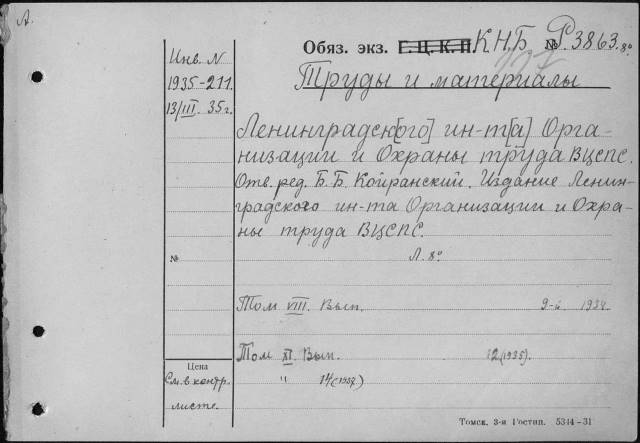 А.
Обяз. экз. Г.Ц.К.П. К.Н.Б № Р3863.8°
Инв. N
1935-211.
13/III. 35 г.
Труды и материалы
Ленинградск[ого] ин-т[а] Орга-
низации и Охраны труда ВЦСПС.
Отв. ред. Б. Б. Койранский. Издание Ленин-
градского ин-та Организации и Охра-
ны труда ВЦСПС.
№
Л. 8°
Том VIII. Вып. 1934.
Том XI. Вып. 12 (1935).
" 14 (1937)
Цена
См. в контр.
листе.
Томск. 3-я Гостип. 5344-31